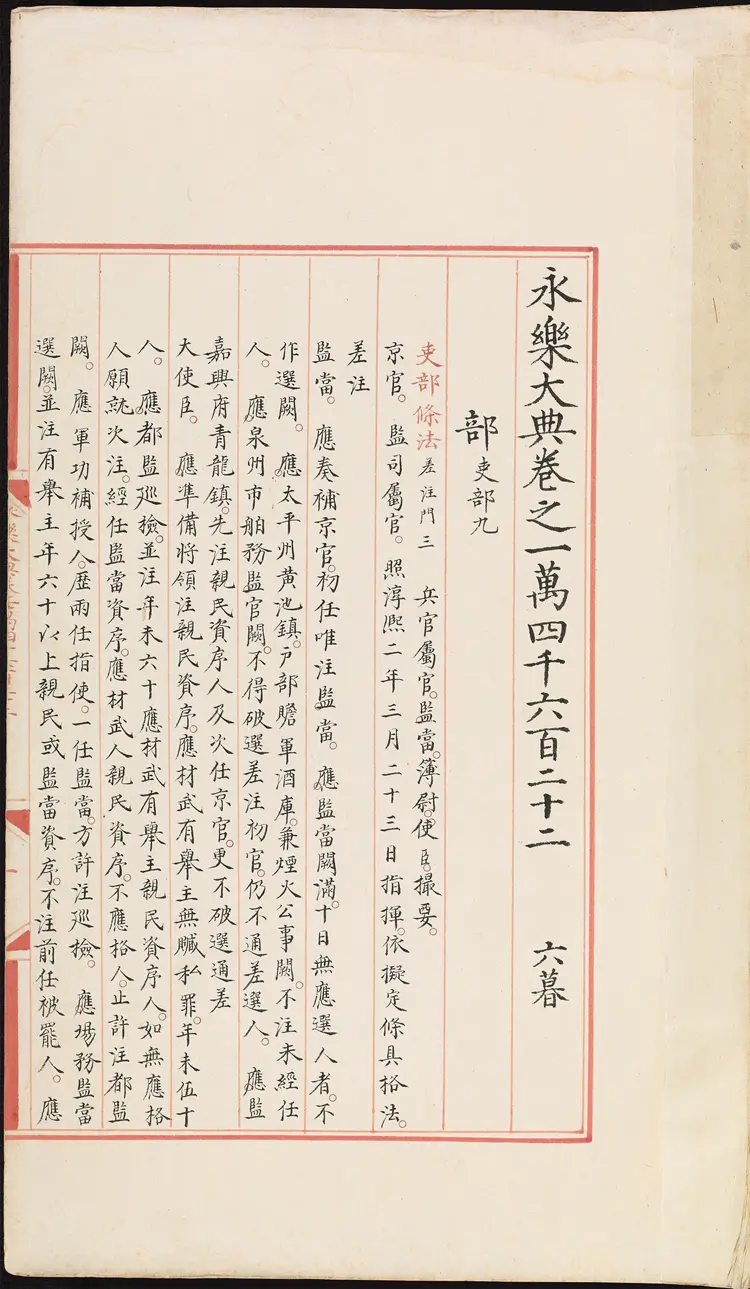 永樂大典卷之一萬四千六百二十二 六暮
部 吏部九
吏部條法 差注門三 兵官屬官。監當。簿尉。使臣。撮要。
京官。 監司屬官。 照淳熈二年三月二十三日指揮。依擬定條具格法。
差注
監當。 應奏補京官。初任唯注監當。 應監當闕滿。十日無應選人者。不
作選闕。 應太平州黄池鎮。户部贍軍酒庫。兼煙火公事闕。不注未經任
人。 應泉州市舶務監官闕。不得破選差注初官。仍不通差選人。 應監
嘉興府青龍鎮。先注親民資序人及次任京官。更不破選通差
大使臣。 應準備將領注親民資序。應材武有舉主無贓私罪。年未伍十
人。 應都監巡檢。並注年未六十應材武有舉主親民資序人。如無應格
人願就次注。經任監當資序。應材武人親民資序。不應格人。止許注都監
闕。 應軍功補授人。歷兩任指使。一任監當。方許注巡檢。 應場務監當
選闕。並注有舉主年六十以上親民或監當資序。不注前任被罷人。 應